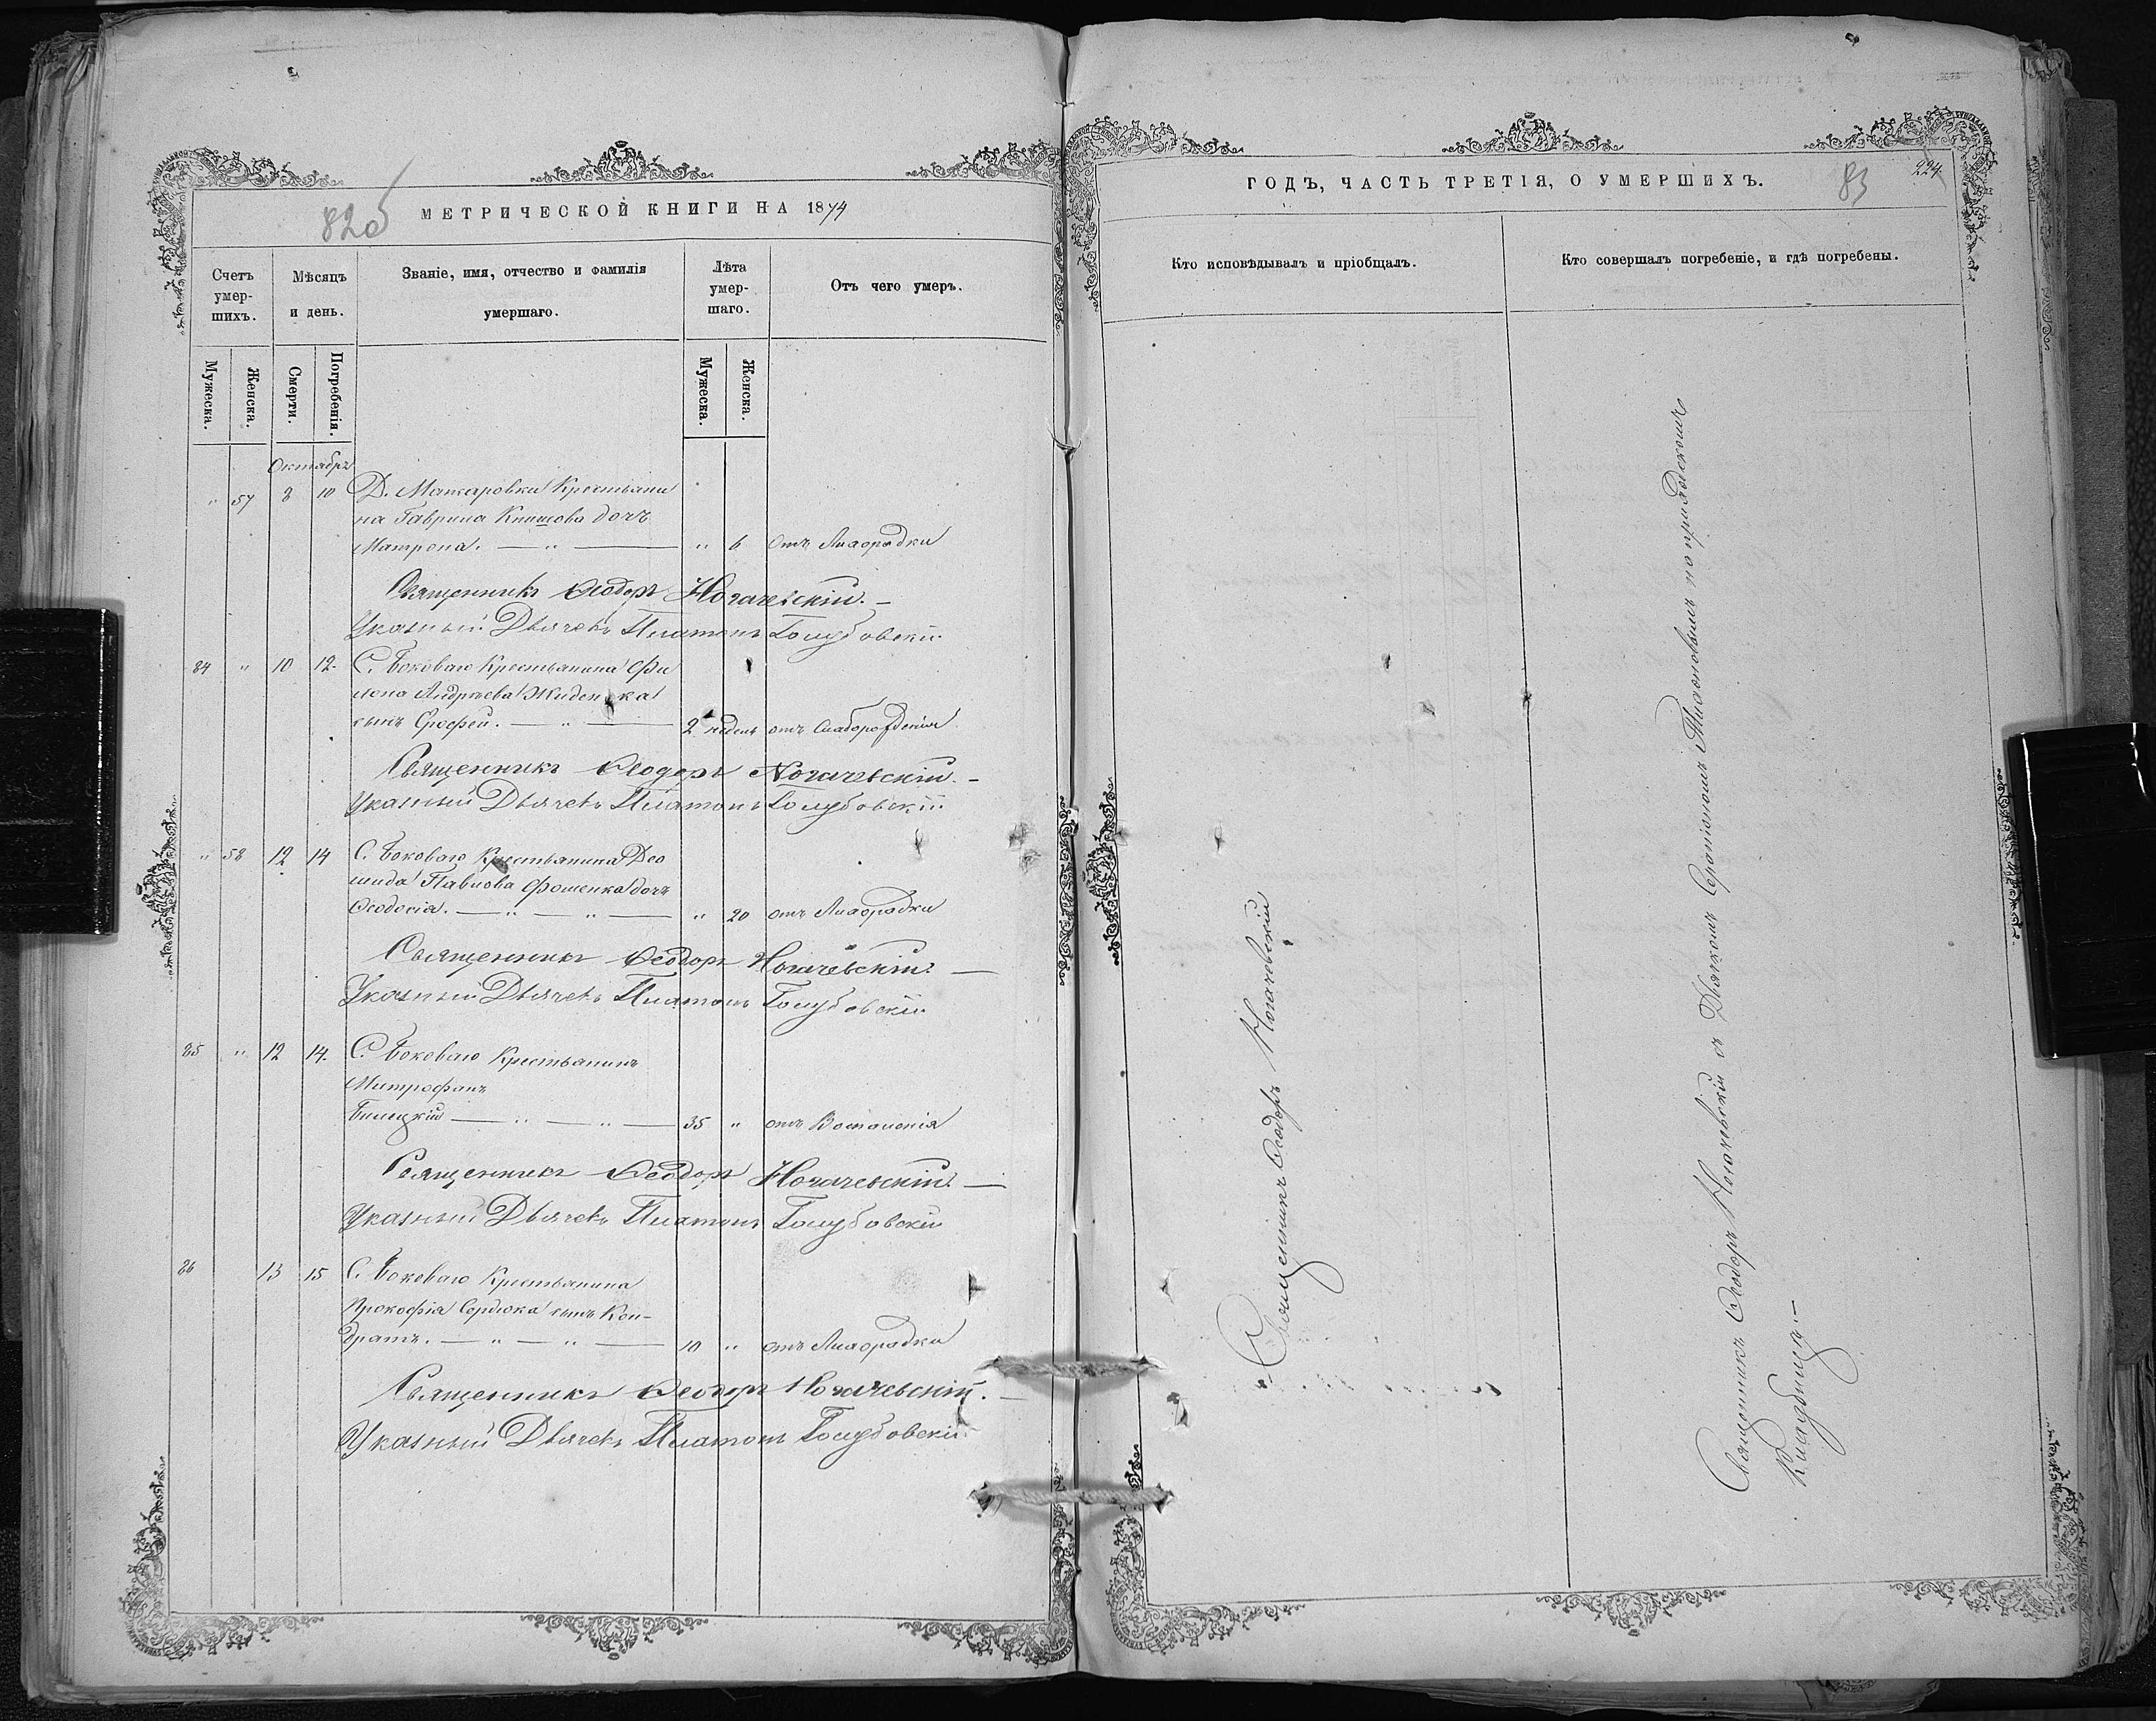 82об
МЕТРИЧЕСКОЙ КНИГИ НА 1874
Счетъ умер-шихъ.
Мѣсяцъ и день.
Званіе, имя, отчество и фамилія умершаго.
Лѣта умер-шаго.
Отъ чего умеръ.
Мужеска.
Женска.
Смерти.
Погребенія.
Мужеска.
Женска.
Октябрь
" 57 8 10 Д. Макаровки Крестьяни
на Гаврила Книшова дочь
Матрона. — " — " 6 Отъ Лихорадки
Священникъ Ѳеодоръ Ногачевскій. —
Указный Дьячекъ Платонъ Голубовскій
84 " 10 12. С. Боковаго Крестьянина Фи
лона Андреева Жиденка
сынъ Ерофей. — " — 2 недель отъ Слаборожденія
Священникъ Ѳеодоръ Ногачевскій. —
Указный Дьячекъ Платонъ Голубовскій
" 58 12 14 С. Боковаго Крестьянина Део
мида Павлова Фоменка дочь
Ѳеодосія. — " — " — " 20 отъ Лихорадки
Священникъ Ѳеодоръ Ногачевскій. —
Указный Дьячекъ Платонъ Голубовскій
85 " 12 14. С. Боковаго Крестьянинъ
Митрофанъ
Билецкій — " — " — 35 " отъ Воспаленія
Священникъ Ѳеодоръ Ногачевскій. —
Указный Дьячекъ Платонъ Голубовскій
86 13 15 С. Боковаго Крестьянина
Прокофія Сердюка сынъ Кон-
дратъ. — " — " — 10 " отъ Лихорадки
Священникъ Ѳеодоръ Ногачевскій. —
Указный Дьячекъ Платонъ Голубовскій
ГОДЪ, ЧАСТЬ ТРЕТІЯ, О УМЕРШИХЪ.
83
224.
Кто исповѣдывалъ и пріобщалъ.
Кто совершалъ погребеніе, и гдѣ погребены.
Священникъ Ѳеодоръ Ногачевскій
Священникъ Ѳеодоръ Ногачевскій съ Дьякомъ на приходскомъ
Кладбищѣ. —